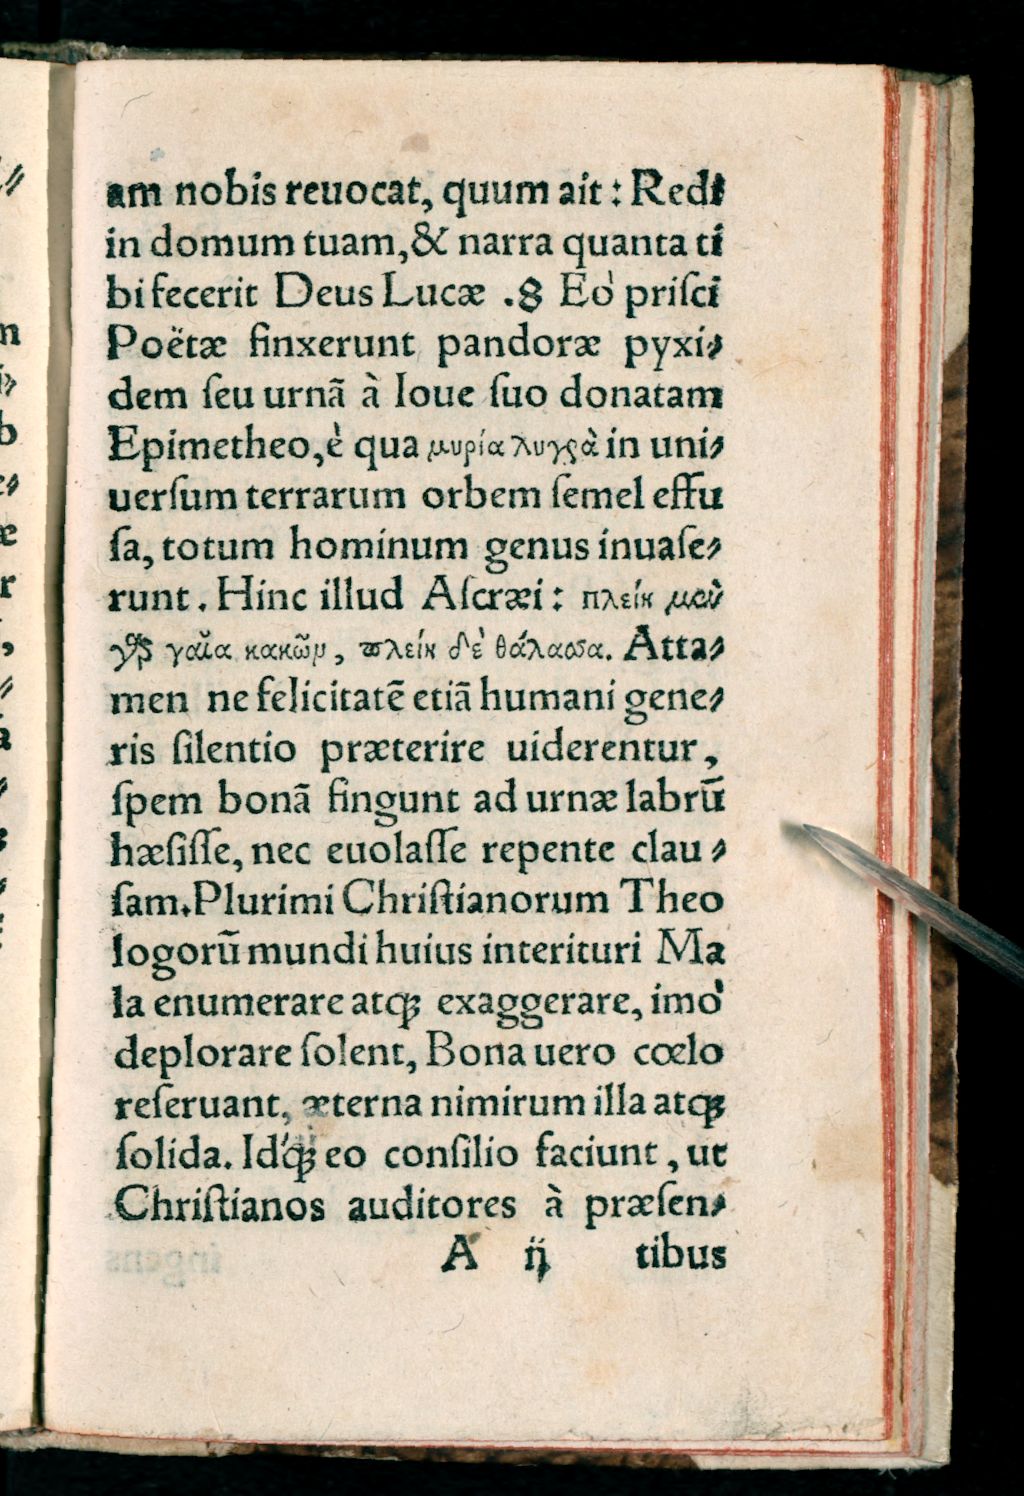 am nobis reuocat, quum ait : Redi
in domum tuam,& narra quanta ti
bi fecerit Deus Lucæ .8 Eò priſci
Poëtæ finxerunt pandoræ pyxi⸗
dem ſeu urnā à Ioue ſuo donatam
Epimetheo,è qua μυρία λυγρὰ in uni⸗
uerſum terrarum orbem ſemel effu
ſa, totum hominum genus inuaſe⸗
runt. Hinc illud Aſcræi : πλείη μὲν
γὰρ γαῖα κακῶν, πλείη δὲ θάλασσα. Atta⸗
men ne felicitatē etiā humani gene⸗
ris ſilentio præterire uiderentur,
ſpem bonā fingunt ad urnæ labrū
hæſiſſe, nec euolaſſe repente clau⸗
ſam. Plurimi Chriſtianorum Theo
logorū mundi huius interituri Ma
la enumerare atqꝫ exaggerare, imò
deplorare ſolent, Bona uero cœlo
reſeruant, æterna nimirum illa atqꝫ
ſolida. Id'qꝫ eo conſilio faciunt, ut
Chriſtianos auditores à præſen⸗
A ij tibus